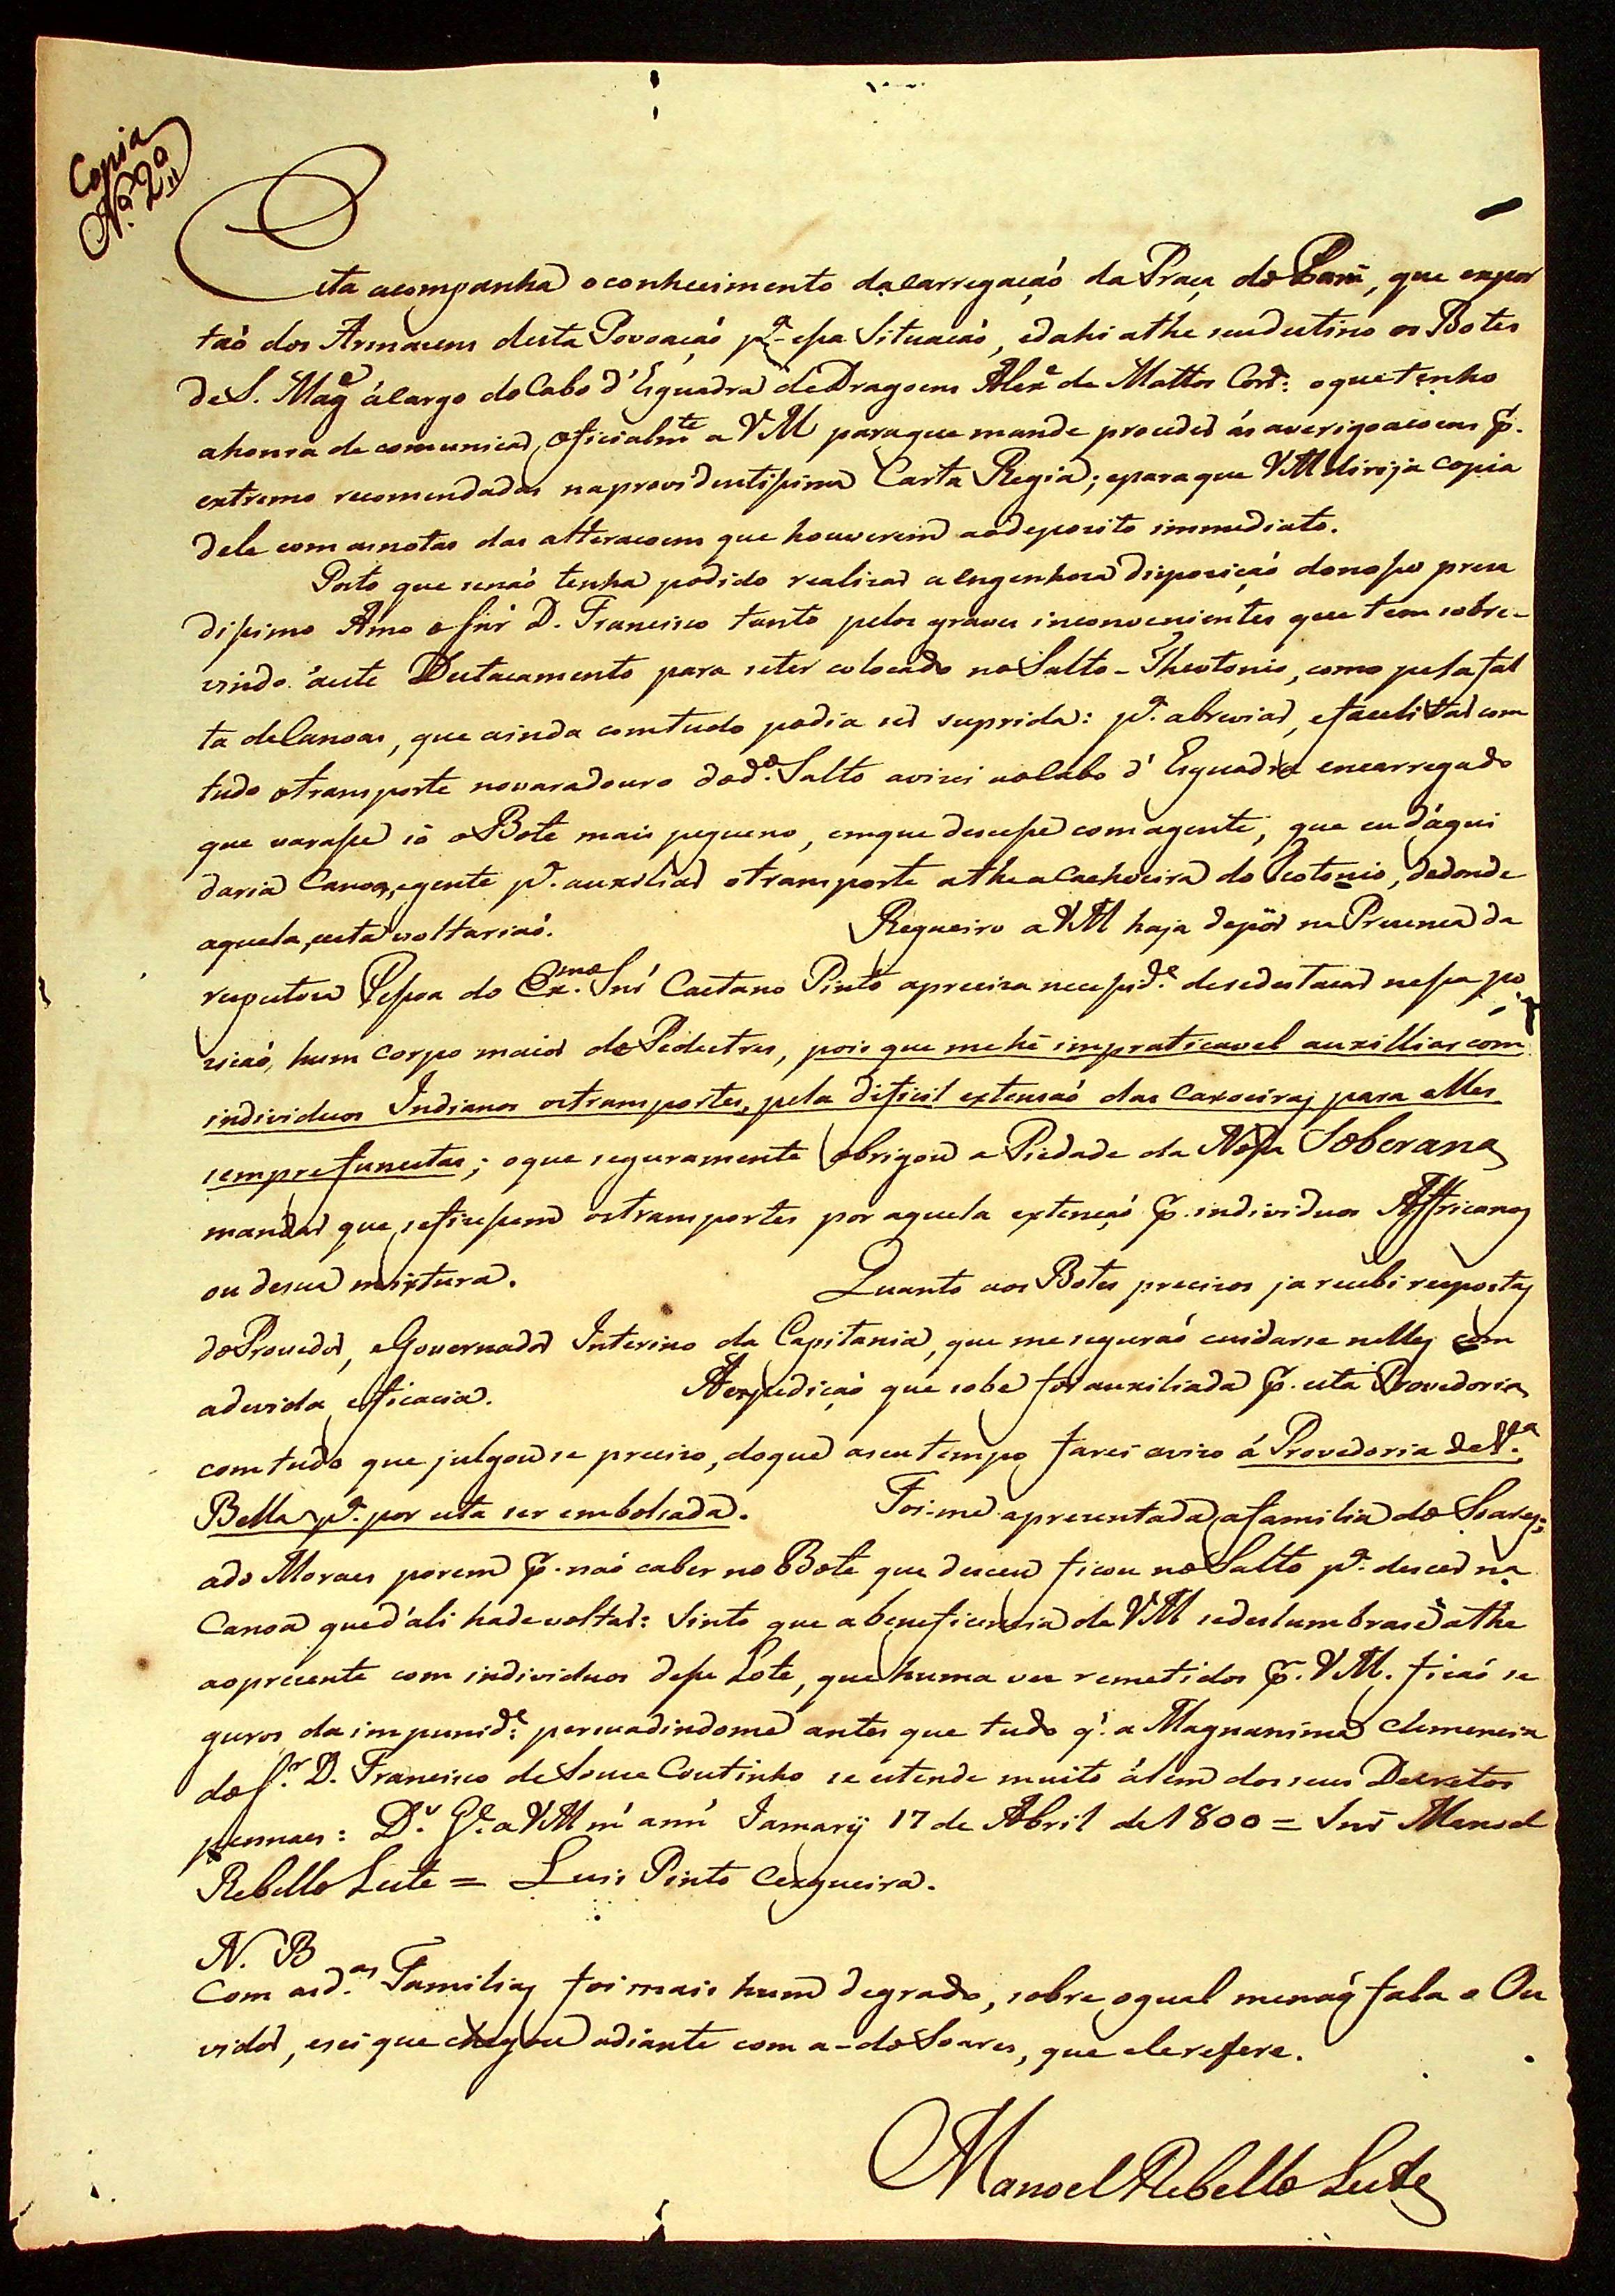 Copia
N.º 2º
Esta acompanha o conhecimento da carregação da Praça do Pará, que expor
tão dos Armazens desta Povoação p.ª essa Situação, e dahi athe seu destino os Botes
de S. Mag.e á cargo do Cabo d'Esquadra de Dragoens Alex.e de Mattos Cord.: o que tenho
a honra de comunicar oficialm.te a VM para que mande proceder ás averigoacoens p.
extremo recomendadas na providentissima Carta Regia; e para que VM dirija copia
dele com as notas das alteracoens que houverem ao deposito immediato.
Posto que senão tenha podido realizar a engenhoza disposição do nosso preza
dissimo Amo o Snr D. Francisco tanto pelos graves inconvenientes que tem sobre-
vindo á este Destacamento para se ter colocado no Salto-Theotonio, como pela fal
ta de Canoas, que ainda comtudo podia ser suprida: p.ª abreviar, e facelitar com
tudo o transporte no varadouro do d.º Salto avizei ao Cabo d'Esquadra encarregado
que varasse só o Bote mais pequeno, em que descesse com a gente, que eu d'aqui
daria Canoa, e gente p.ª auxiliar o transporte athe a Cachoeira do Teotonio, dedonde
aquela, e esta voltarião. Requeiro a VM haja de pôr na Prezenca da
respeitoza Pessoa do Ex.mo Snr Caetano Pinto a preciza necessid.e de se destacar nessa po
zicaó, hum corpo maior de Pedestres, pois que me hé impraticavel auxilliar com
individuos Indianos os transportes, pela dificil extensaó das Caxoeiras para elles
sempre funestas; o que seguramente obrigou a Piedade da Nossa Soberana
mandar que se fizessem os transportes por aquela extenção p. individuos Affricanos
ou de sua mixtura. Quanto aos Botes precizos ja recebi respostas
do Provedor, e Governador Interino da Capitania, que me segurão cuidarse nelles com
a devida eficacia. A expedição que sobe foi auxiliada p. esta Provedoria
com tudo que julgou se precizo, do que a seu tempo farei avizo á Provedoria de V.ª
Bella p.ª por esta ser embolsada. Foi-me apresentada a familia do Soares;
a do Moraes porem p. não caber no Bote que desceu ficou no Salto p.ª descer na
Canoa que d'ali hade voltar: Sinto que a beneficencia de VM se deslumbrase athe
ao prezente com individuos desse Lote, que huma vez remetidos p. VM. ficaó se
guros da impunid.e: persuadindome antes que tudo q. a Magnanima Clemencia
do S.r D. Francisco de Souza Coutinho se estende muito álem dos seus Decretos
pennaes: D.s G.e a VM m' ann' Jamary 17 de Abril de 1800 = Snr Manoel
Rebello Leite = Luis Pinto Cerqueira.
N. B
Com as d.as Familias foi mais hum degrado, sobre o qual me não fala o Ou
vidor, e sei que chegou adiante com a-do Soares, que ele refere.
Manoel Rebello Leite